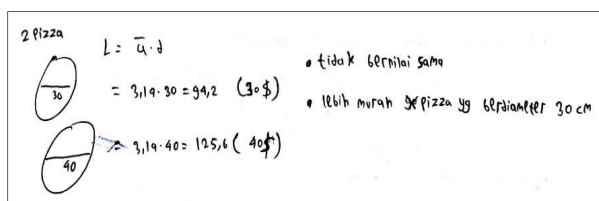 2 Pizza
L = π . d
30
= 3,14 . 30 = 94,2 (30$)
40
= 3,14 . 40 = 125,6 (40$)
• tidak bernilai sama
• lebih murah pizza yg berdiameter 30 cm